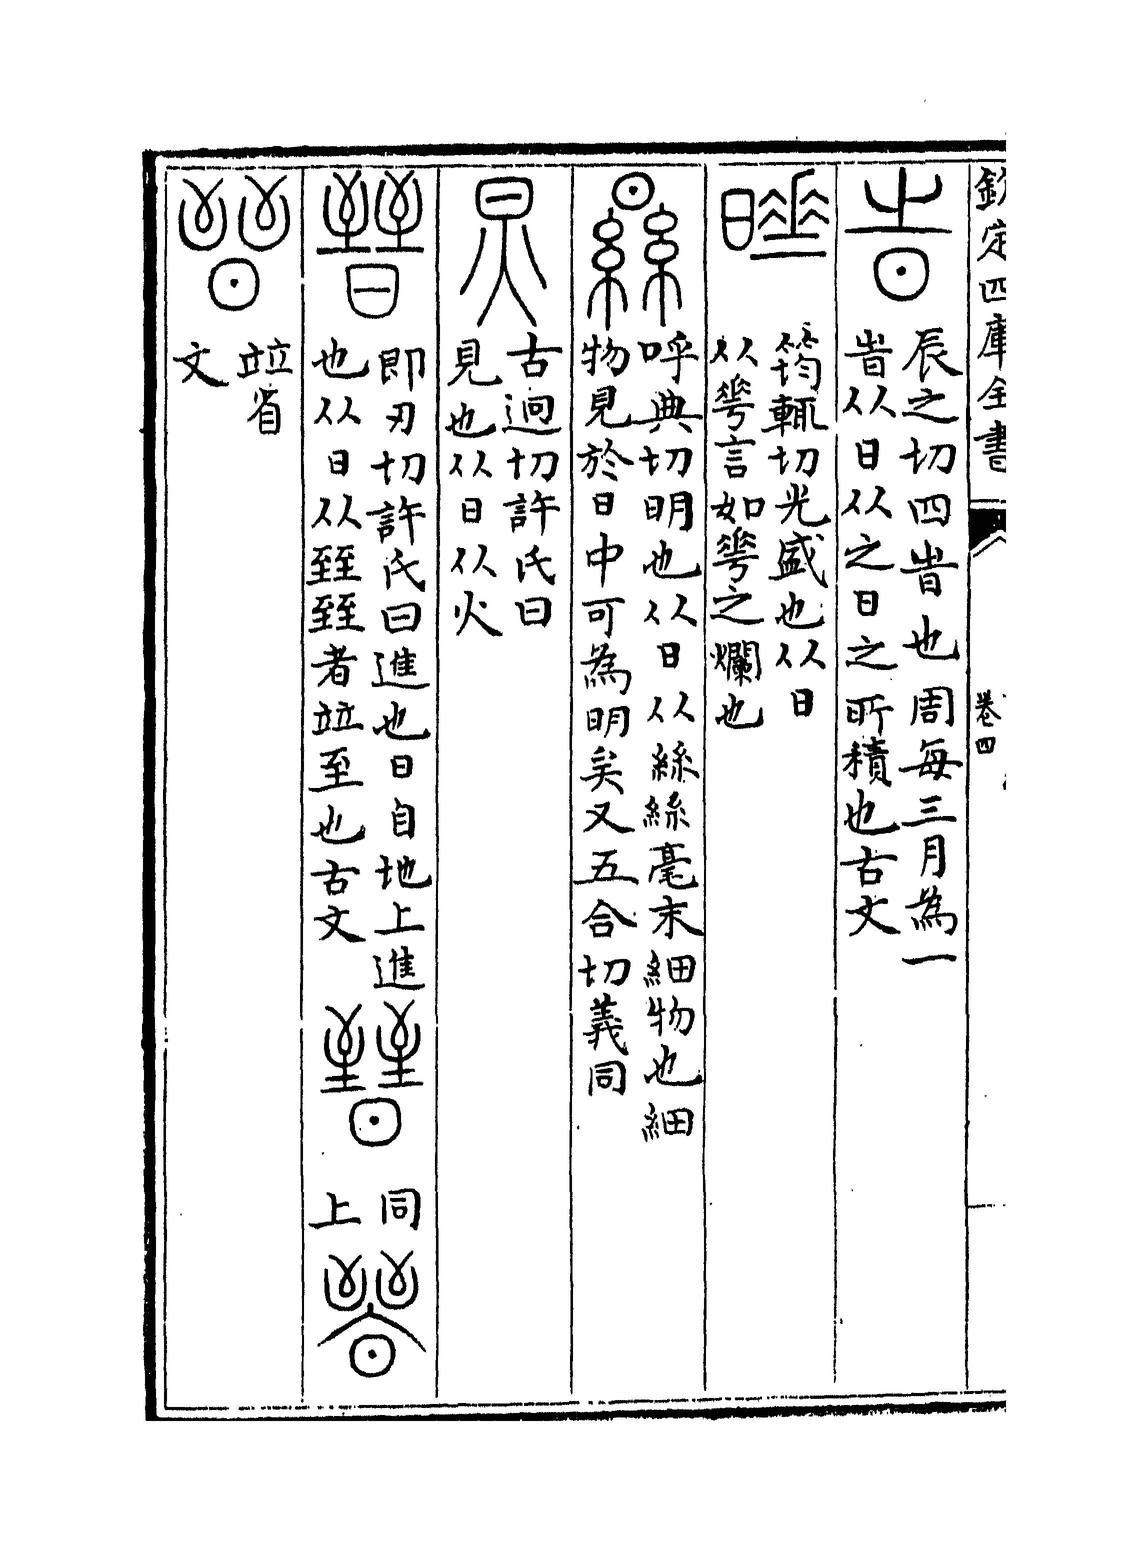 欽定四庫全書
卷四
旹
辰之切四旹也周每三月為一
旹从日从之日之所積也古文
曄
筠輒切光盛也从日
从𠌶言如𠌶之爛也
㬎
呼典切明也从日从絲絲毫末細物也細
物見於日中可為明矣又五合切義同
炅
古迥切許氏曰
見也从日从火
晉
即刃切許氏曰進也日自地上進
也从日从臸臸者竝至也古文
同
上
竝省
文